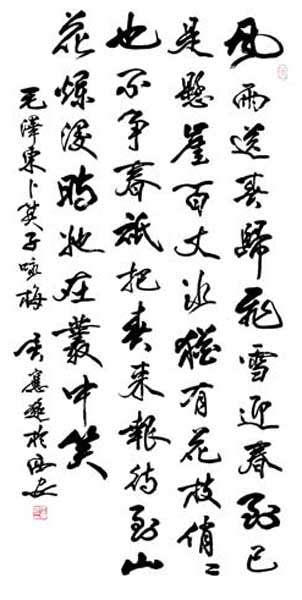 風雨送春歸飛雪迎春到已
是懸崖百丈冰猶有花枝俏〻
也不争春祇把春来報待到山
花爛漫時她在叢中笑
毛澤東卜算子咏梅